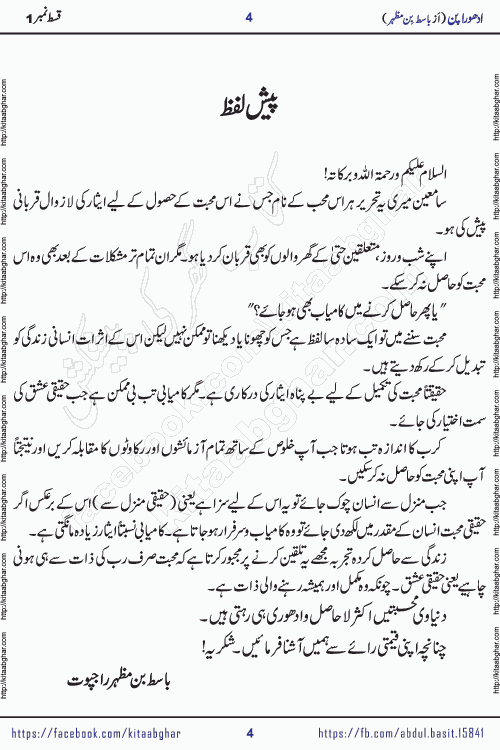 ادھورا پن (از باسط بن مظہر) 4 قسط نمبر 1
پیش لفظ
السلام علیکم ورحمۃ اللہ وبرکاتہ!
سامعین میری یہ تحریر ہر اس محب کے نام جس نے اس محبت کے حصول کے لیے ایثار کی لازوال قربانی
پیش کی ہو۔
اپنے شب وروز، متعلقین حتیٰ کے گھر والوں کو بھی قربان کر دیا ہو۔ مگر ان تمام تر مشکلات کے بعد بھی وہ اس
محبت کو حاصل نہ کر سکے۔
"یا پھر حاصل کرنے میں کامیاب بھی ہو جائے؟"
محبت سننے میں تو ایک سادہ سا لفظ ہے جس کو چھونا یا دیکھنا تو ممکن نہیں لیکن اس کے اثرات انسانی زندگی کو
تبدیل کر کے رکھ دیتے ہیں۔
حقیقتاً محبت کی تکمیل کے لیے بے پناہ ایثار کی درکاری ہے۔ مگر کامیابی تب ہی ممکن ہے جب حقیقی عشق کی
سمت اختیار کی جائے۔
کرب کا اندازہ تب ہوتا جب آپ خلوص کے ساتھ تمام آزمائشوں اور رکاوٹوں کا مقابلہ کریں اور نتیجتاً
آپ اپنی محبت کو حاصل نہ کر سکیں۔
جب منزل سے انسان چوک جائے تو یہ اس کے لیے سزا ہے یعنی (حقیقی منزل سے) اس کے برعکس اگر
حقیقی محبت انسان کے مقدر میں لکھ دی جائے تو وہ کامیاب و سرفراز ہو جاتا ہے۔ کامیابی نسبتاً ایثار زیادہ مانگتی ہے۔
زندگی سے حاصل کردہ تجربہ مجھے یہ تلقین کرنے پر مجبور کرتا ہے کہ محبت صرف رب کی ذات سے ہی ہونی
چاہیے یعنی حقیقی عشق۔ چونکہ وہ مکمل اور ہمیشہ رہنے والی ذات ہے۔
دنیاوی محبتیں اکثر لا حاصل و ادھوری ہی رہتی ہیں۔
چنانچہ اپنی قیمتی رائے سے ہمیں آشنا فرمائیں۔ شکریہ!
باسط بن مظہر راجپوت
https://facebook.com/kitaabghar 4 https://fb.com/abdul.basit.15841
http://kitaabghar.com http://kitaabghar.com http://kitaabghar.com http://kitaabghar.com http://kitaabghar.com http://kitaabghar.com http://kitaabghar.com http://kitaabghar.com
http://kitaabghar.com http://kitaabghar.com http://kitaabghar.com http://kitaabghar.com http://kitaabghar.com http://kitaabghar.com http://kitaabghar.com http://kitaabghar.com